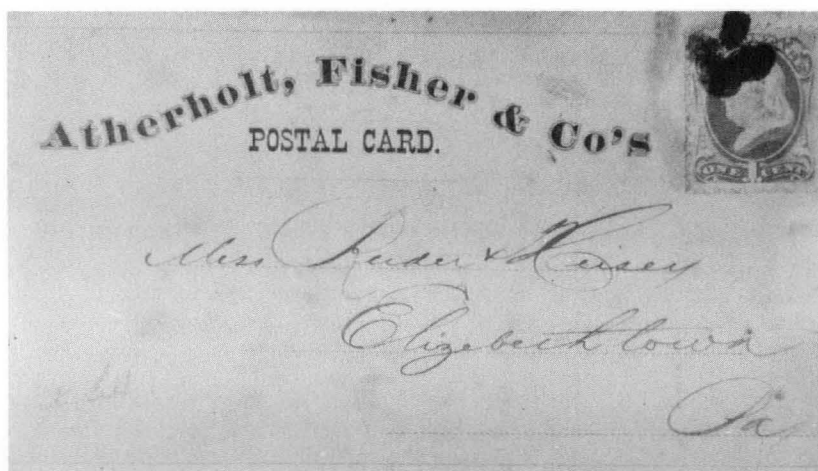 Atherholt, Fisher & Co's
POSTAL CARD.
ONE CENT
Mess Reider & Heisey
Elizabethtown
Pa